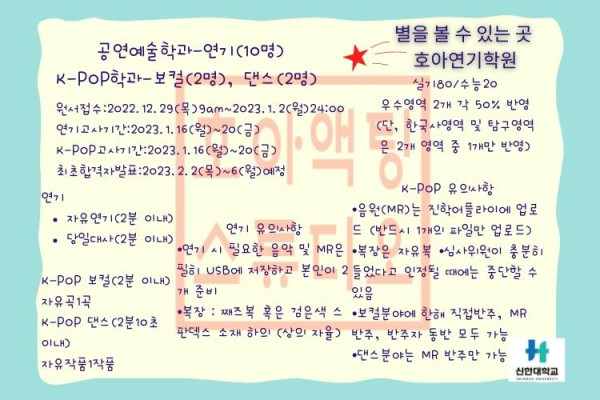 공연예술학과-연기(10명)
K-POP학과-보컬(2명), 댄스(2명)
별을 볼 수 있는 곳
호아연기학원
원서접수:2022.12.29(목)9am~2023.1.2(월)24:00
연기고사기간:2023.1.16(월)~20(금)
K-POP고사기간:2023.1.16(월)~20(금)
최초합격자발표:2023.2.2(목)~6(월)예정
실기80/수능20
우수영역 2개 각 50% 반영
(단, 한국사영역 및 탐구영역
은 2개 영역 중 1개만 반영)
연기
• 자유연기(2분 이내)
• 당일대사(2분 이내)
K-POP 보컬(2분 이내)
자유곡1곡
K-POP 댄스(2분10초
이내)
자유작품1작품
연기 유의사항
•연기 시 필요한 음악 및 MR은
필히 USB에 저장하고 본인이 2
개 준비
•복장 : 째즈복 혹은 검은색 스
판덱스 소재 하의 (상의 자율)
K-POP 유의사항
•음원(MR)는 진학어플라이에 업로
드 (반드시 1개의 파일만 업로드)
•복장은 자유복 •심사위원이 충분히
들었다고 인정될 때에는 중단할 수
있음
•보컬분야에 한해 직접반주, MR
반주, 반주자 동반 모두 가능
•댄스분야는 MR 반주만 가능
호아액팅
스튜디오
신한대학교
SHINHAN UNIVERSITY